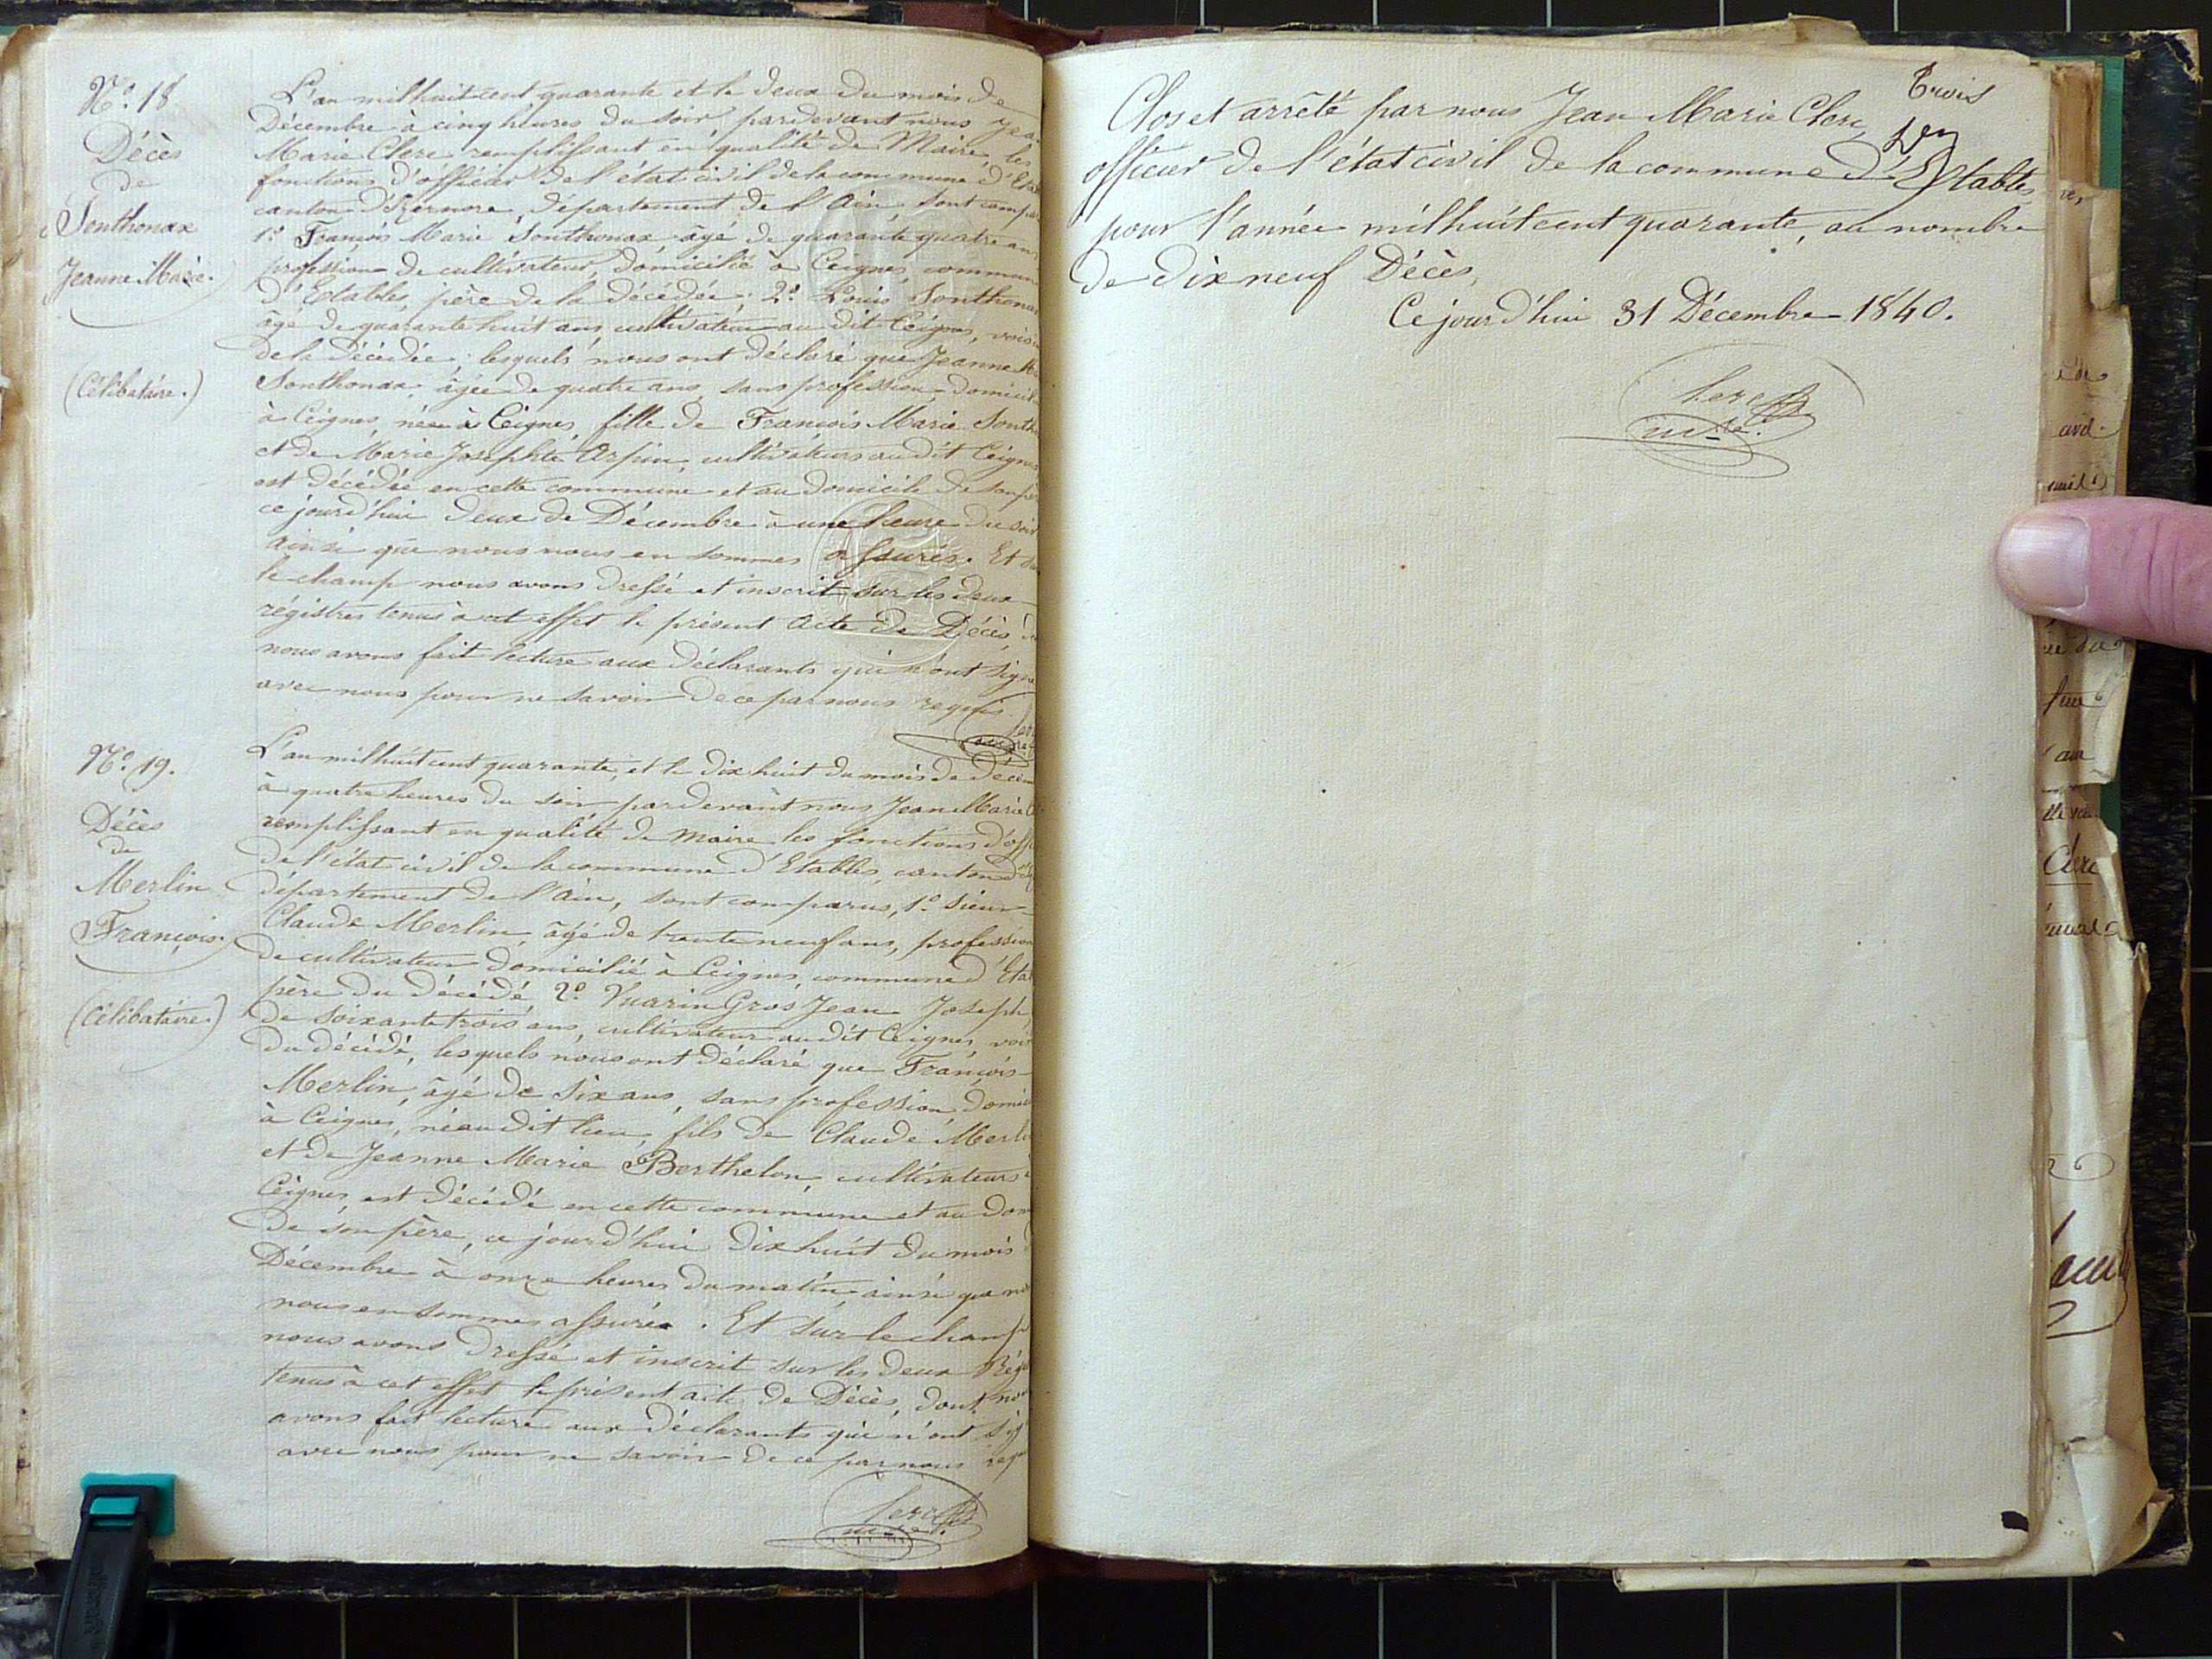 N.º 18
Décès
de
Sonthonax
Jeanne Marie.
(Célibataire.)
L'an milhuit cent quarante et le deux du mois de
Décembre à cinq heures du soir pardevant nous Jean
Marie Clerc remplissant en qualité de Maire, les
fonctions d'officier de l'état civil de la commune d'Eta
canton d'Izernore, département de l'Ain, sont compa
1.º François Marie Sonthonax âgé de quarante quatre ans
profession de cultivateur, domicilié à Ceignes, commun
d'Etables, père de la décédée; 2.º Louis Sonthonax
âgé de quarante huit ans cultivateur au dit Ceignes, voisin
de la décédée; lesquels nous ont déclaré que Jeanne Ma
Sonthonax, âgée de quatre ans, sans profession, domicili
à Ceignes, née à Ceignes, fille de François Marie Sontho
et de Marie Josephte Arpin, cultivateurs au dit Ceignes
est décédée en cette commune et au domicile de son pè
ce jourd'hui deux de Décembre à une heure du soir
ainsi que nous nous en sommes assurés. Et su
le champ nous avons dressé et inscrit sur les deux
régistres tenus à cet effet le présent acte de Décès, do
nous avons fait lecture aux déclarants qui n'ont signé
avec nous pour ne savoir de ce par nous requis.
N.º 19.
Décès
de
Merlin
François.
(Célibataire.)
L'an milhuit cent quarante, et le dix huit du mois de Décem
à quatre heures du soir pardevant nous Jean Marie C
remplissant en qualité de maire les fonctions d'offi
de l'état civil de la commune d'Etables, canton d'Iz
département de l'Ain, sont comparus, 1.º Sieur
Claude Merlin, âgé de trente neuf ans, profession
de cultivateur domicilié à Ceignes, commune d'Etab
père du décédé, 2.º Vuarin Gros Jean Joseph,
de soixante trois ans, cultivateur au dit Ceignes, voi
du décédé, lesquels nous ont déclaré que François
Merlin, âgé de six ans, sans profession, domici
à Ceignes, né au dit lieu, fils de Claude Merli
et de Jeanne Marie Berthelon, cultivateurs à
Ceignes, est décédé en cette commune et au dom
de son père, ce jourd'hui dix huit du mois d
Décembre à onze heures du matin, ainsi que no
nous en sommes assurés. Et sur le champ
nous avons dressé et inscrit sur les deux Régi
tenus à cet effet le présent acte de Décès, dont nou
avons fait lecture aux déclarants qui n'ont sig
avec nous pour ne savoir de ce par nous requ
Clerc
mre.
Trois
Clos et arrêté par nous Jean Marie Clerc,
officier de l'état civil de la commune d'Etables,
pour l'année milhuit cent quarante, au nombre
de dix neuf Décès,
Ce jourd'hui 31 Décembre 1840.
Clerc
mre.
Clerc